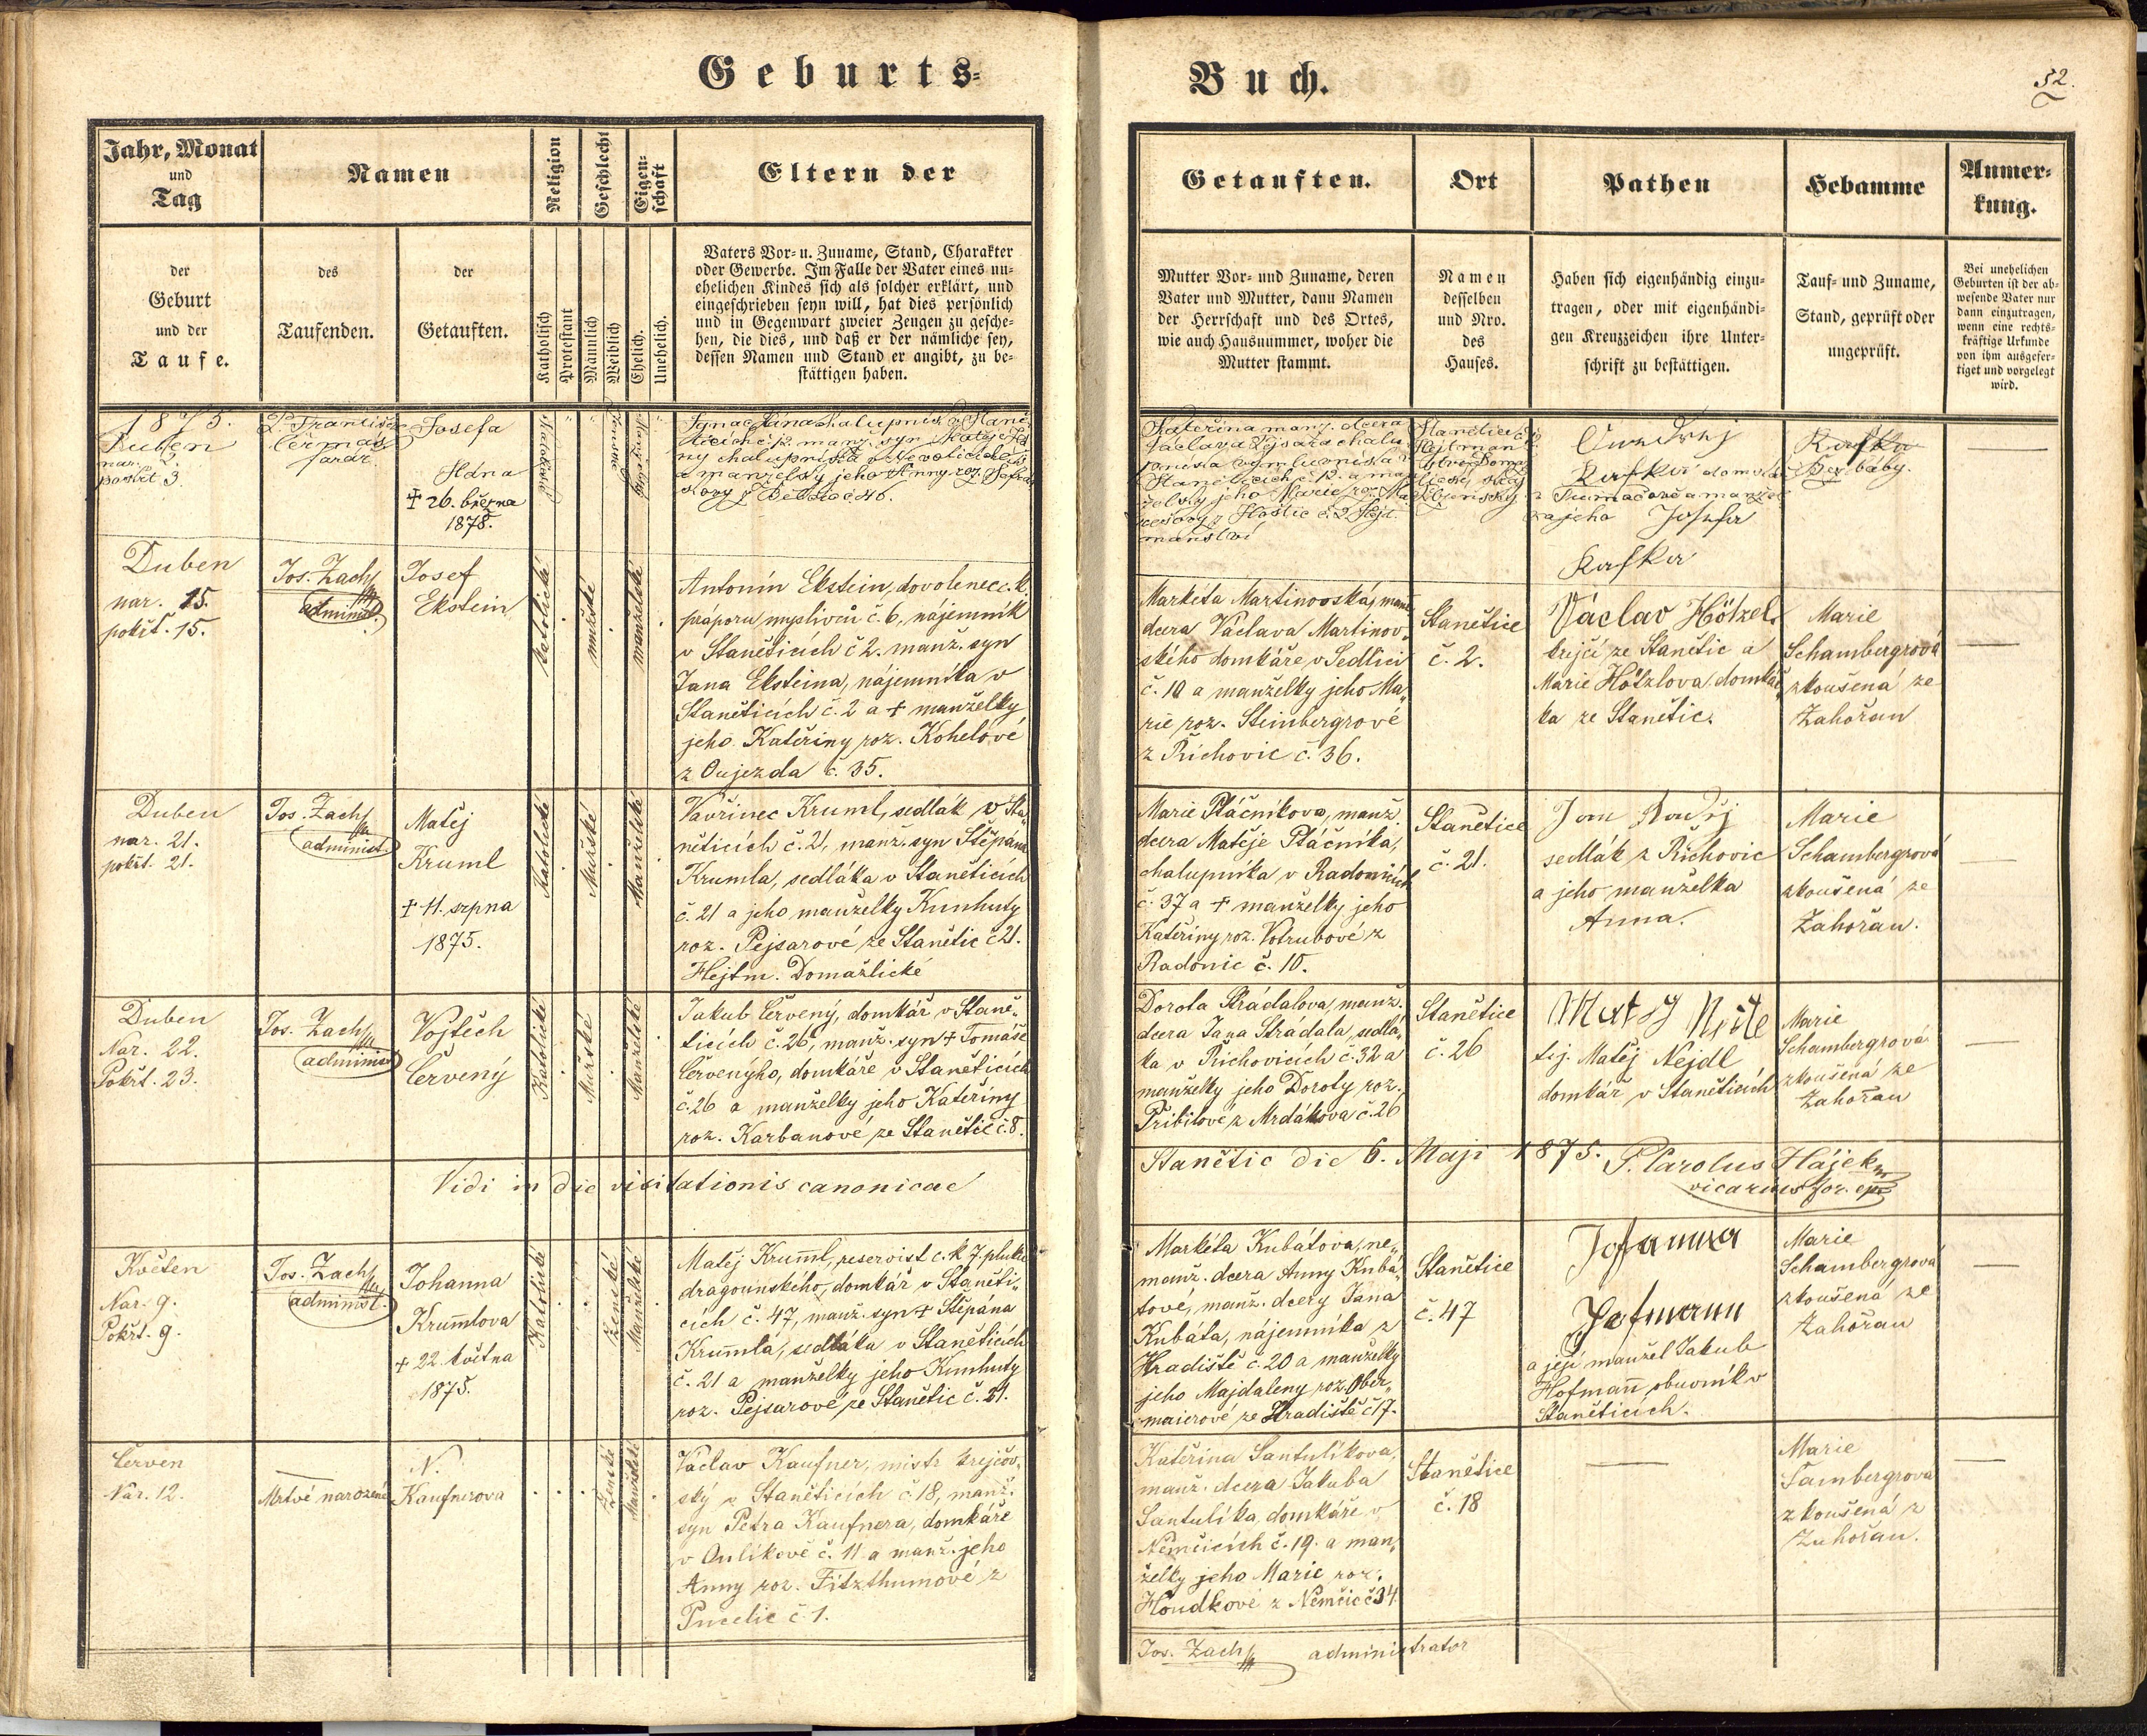 Geburts=
Buch.
52.
Jahr, Monat
und
Tag
Namen
Religion
Geschlecht
Eigen=
schaft
Eltern der
Getauften.
Ort
Pathen
Hebamme
Anmer=
kung.
der
Geburt
und der
Taufe.
des
Taufenden.
der
Getauften.
Katholisch
Protestant
Männlich
Weiblich
Ehelich.
Unehelich.
Vaters Vor= u. Zuname, Stand, Charakter
oder Gewerbe. Im Falle der Vater eines un=
ehelichen Kindes sich als solcher erklärt, und
eingeschrieben seyn will, hat dies persönlich
und in Gegenwart zweier Zeugen zu gesche=
hen, die dies, und daß er der nämliche sey,
dessen Namen und Stand er angibt, zu be=
stättigen haben.
Mutter Vor= und Zuname, deren
Vater und Mutter, dann Namen
der Herrschaft und des Ortes,
wie auch Hausnummer, woher die
Mutter stammt.
Namen
desselben
und Nro.
des
Hauses.
Haben sich eigenhändig einzu=
tragen, oder mit eigenhändi=
gen Kreuzzeichen ihre Unter=
schrift zu bestättigen.
Tauf= und Zuname,
Stand, geprüft oder
ungeprüft.
Bei unehelichen
Geburten ist der ab=
wesende Vater nur
dann einzutragen,
wenn eine rechts=
kräftige Urkunde
von ihm ausgefer=
tiget und vorgelegt
wird.
1875.
Duben
nar. 2.
pokřt. 3.
P. František
Čermák
farář.
Josefa
Hána
+ 26. března
1878.
Katolické
ženské
manželské
a manželky jeho Anny roz.
č. 46.
Kateřina manž. dcera
Václava
Stanětice
a manžel
Josefa
Kafka
Bez báby.
Duben
nar. 15.
pokřt. 15.
Jos. Zach
administ.
Josef
Ekstein
katolické
mužské
manželské
Antonín Ekstein, dovolenec c. k.
práporu myslivců č. 6, nájemník
v Staněticích č 2. manž. syn
Jana Eksteina, nájemníka v
Staněticích č. 2 a + manželky
jeho Kateřiny roz. Kohelové
z Oujezda č. 35.
Markéta Martinovská, manž.
dcera Václava Martinov„
ského domkáře v Sedlici
č. 10 a manželky jeho Ma„
rie roz. Steinbergrové
z Přichovic č. 36.
Stanětice
č. 2.
Václav Hötzel,
krejčí ze Stanětic a
Marie Hötzlova, domkář„
ka ze Stanětic.
Marie
Schambergrová
zkoušená ze
Zahořan
Duben
nar. 21.
pokřt. 21.
Jos. Zach
administ.
Matěj
Kruml
+ 11. srpna
1875.
Katolické
Mužské
Manželské
Vavřinec Kruml, sedlák v Sta„
něticích č. 21, manž. syn Štěpána
Krumla, sedláka v Staněticích
č. 21 a jeho manželky Kunhuty
roz. Pejsarové ze Stanětic č 21.
Hejtm. Domažlické
Marie Ptáčníkova, manž.
dcera Matěje Ptáčníka,
chalupníka v Radonicích
č. 37 a + manželky jeho
Kateřiny roz. Votrubové z
Radonic č. 10.
Stanětice
č. 21.
Jan
sedlák z Přichovic
a jeho manželka
Anna.
Marie
Schambergrová
zkoušená ze
Zahořan.
Duben
Nar. 22.
Pokřt. 23.
Jos. Zach
administ
Vojtěch
Červený
Katolické
Mužské
Manželské
Jakub Červený, domkář v Staně„
ticích č. 26, manž. syn + Tomáše
Červenýho, domkáře v Staněticích
č. 26 a manželky jeho Kateřiny
roz. Karbanové, ze Stanětic č. 8.
Dorota Strádalova, manž.
dcera Jana Strádala, sedlá„
ka v Přichovicích č. 32 a
manželky jeho Doroty roz.
Přibilové z Mrdákova č. 26
Stanětice
č. 26
tej. Matěj Nejdl
domkář v Staněticích
Marie
Schambergrová
zkoušená ze
Zahořan
Vidi in die visitationis canonicae
Stanětic die 6. Maji 1875. P. Carolus Hájek
vicarius for. epr
Květen
Nar. 9.
Pokřt. 9.
Jos. Zach
administ.
Johanna
Krumlova
+ 22. května
1875.
Katolické
ženské
Manželské
Matěj Kruml, reservist c. k 7. pluku
dragounského, domkář v Staněti„
cích č. 47, manž. syn + Štěpána
Krumla, sedláka v Staněticích
č. 21 a manželky jeho Kunhuty
roz. Pejsarové ze Stanětic č. 21.
Markéta Kubátova, ne„
manž. dcera Anny Kubá„
tové, manž. dcery Jana
Kubáta, nájemníka z
Hradiště č. 20 a manželky
jeho Majdaleny roz. Ober„
maierové ze Hradiště č 17.
Stanětice
č. 47
Johanna
Hofmann
a její manžel Jakub
Hofmann obuvník v
Staněticích.
Marie
Schambergrová
zkoušená ze
Zahořan
Červen
Nar. 12.
Mrtvě narozené
N.
Kaufnerova
Ženské
Manželské
Václav Kaufner, mistr krejčov„
ský v Staněticích č. 18, manž.
syn Petra Kaufnera, domkáře
v Oulíkově č. 11 a manž. jeho
Anny roz. Fitzthumové z
Pucelic č. 1.
Kateřina Santulíkova,
manž. dcera Jakuba
Santulíka, domkáře v
Němčicích č. 19. a man„
želky jeho Marie roz.
Houdkové z Němčic č 34.
Stanětice
č. 18
Marie
Šambergrová
zkoušená z
Zahořan.
Jos. Zach administrator